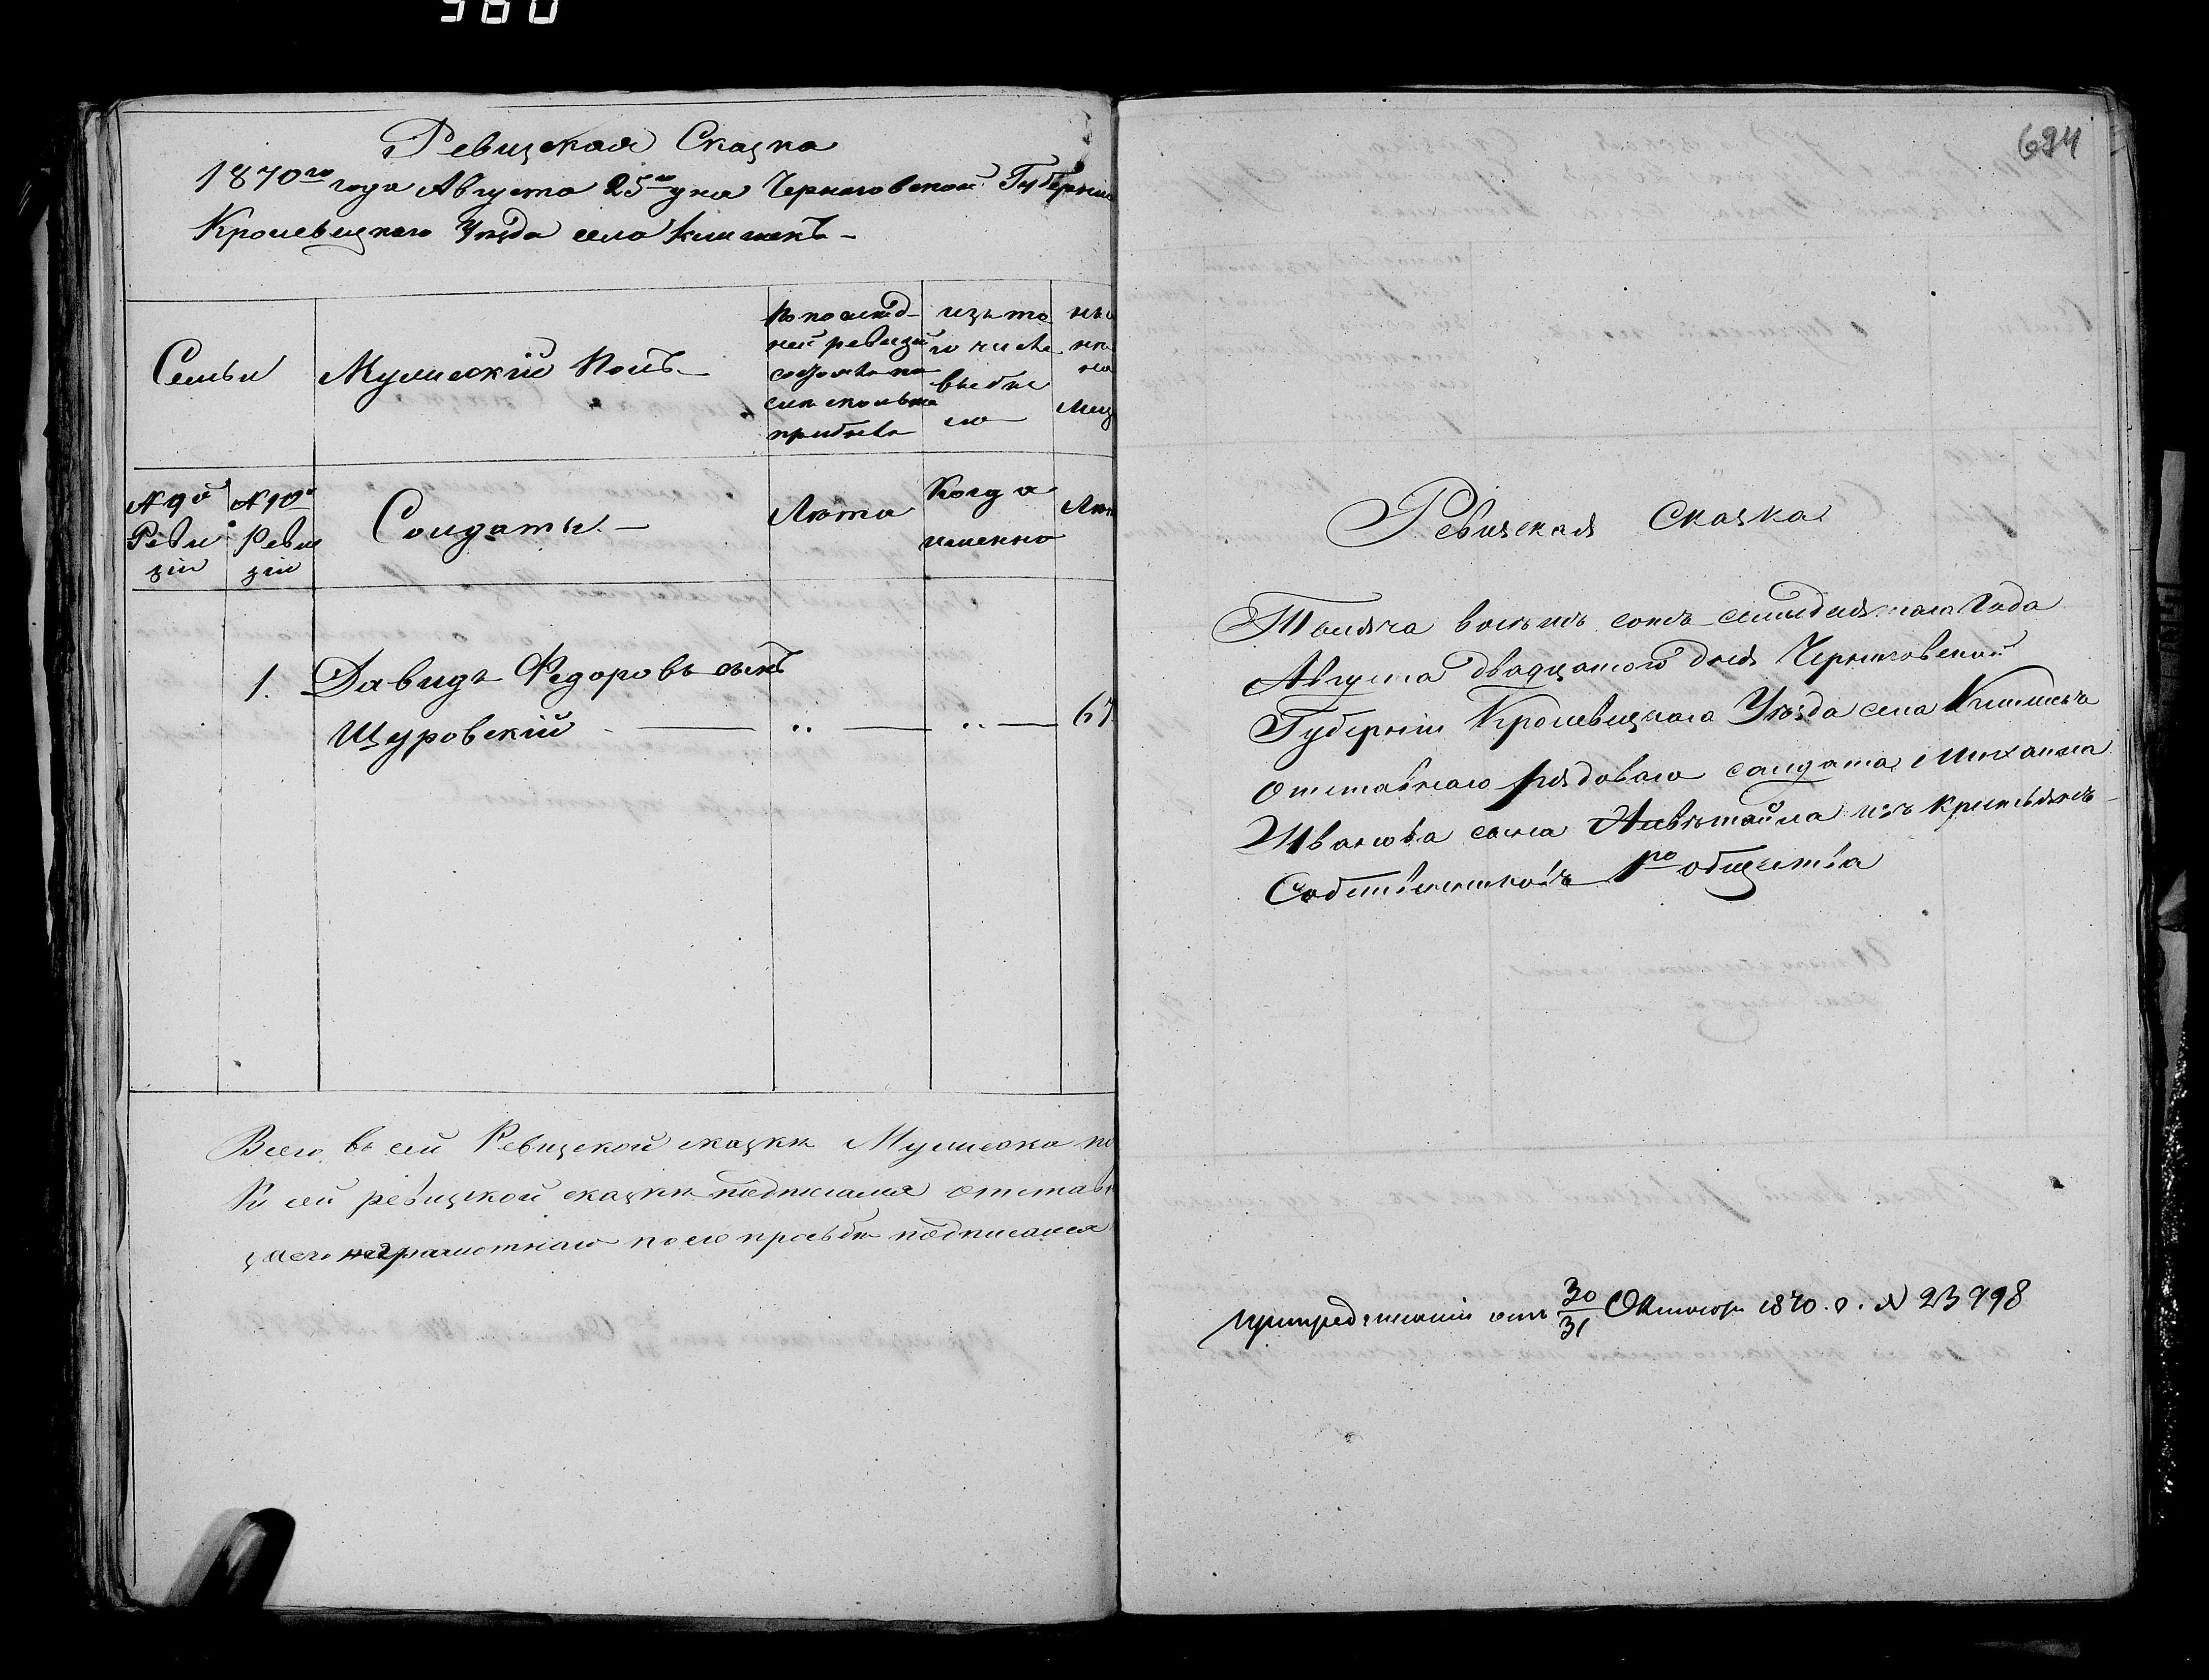 580
Ревизская Сказка
1870го года Августа 25го дня Черниговской Губернии
Кролевецкаго Уезда села Клишекъ
Семьи
Мужескій Полъ
По послѣд-
ней ревизіи
состояло по
слѣ сколько
прибыло
изъ то
го числа
выбы
ло
Лиц
№ 9й
Реви
зіи
№ 10й
Реви
зіи
Солдаты
Лѣта
Когда
именно
Лѣт
1.
Давидъ Федоровъ сынъ
Щуровскій — „ — „ — 67
Всего въ сей Ревизской сказки Мужеска по
К сей ревизской сказки подписался отставн
неграмотнаго по его прозьбѣ подписался
694
Ревизская Сказка
Тысяча восемъ сотъ семидесятаго Года
Августа двадцатого дня Черниговской
Губерніи Кролевецкаго Уѣзда села Клишекъ
Отставнаго рядоваго солдата Михаила
Иванова сына из крестьянъ
Собственниковъ 1го общества
при предписаніи отъ 30/31 Октября 1870. г. № 23998